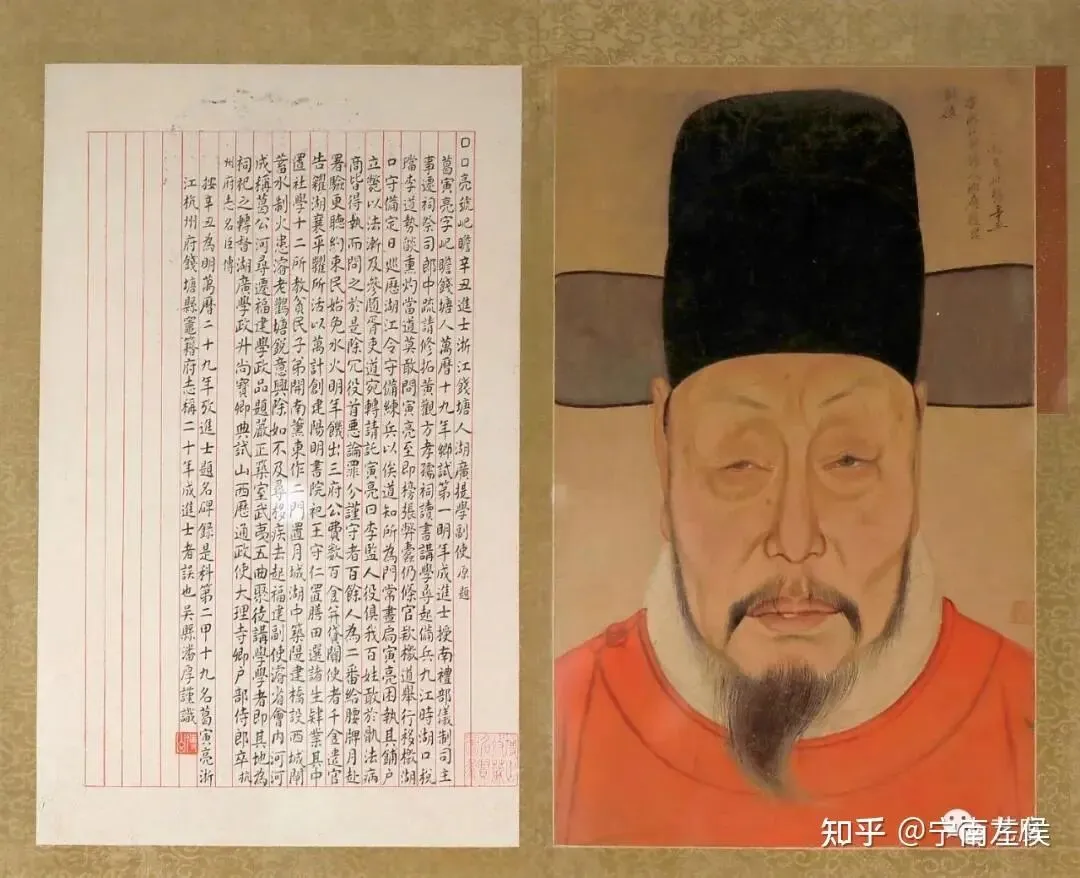 □□亮號屺瞻辛丑進士浙江錢塘人湖廣提學副使原題
葛寅亮字屺瞻錢塘人萬曆十九年鄉試第一明年成進士授南禮部儀制司主
事遷祠祭司郎中疏請修拓黃觀方孝孺祠讀書講學尋起備兵九江時湖口稅
璫李道勢燄熏灼當道莫敢問寅亮至即榜張弊橐仍條官欵檄道舉行移檄湖
口守備定日巡歷湖江令守備練兵以俟道知所為門常晝扃寅亮因執其鋪戶
立斃以法漸及參隨胥吏道宛轉請託寅亮曰李監人役俱我百姓敢於骫法病
商皆得執而問之於是除冗役首惡論罪分謹守者百餘人為二番給腰牌月赴
署驗更聽約束民始免水火明年饑出三府公費數百金并貸關使者千金遣官
告糴湖襄平糶所活以萬計創建陽明書院祀王守仁置膳田選諸生肄業其中
置社學十二所教貧民子弟開南薰東作二門置月城湖中築隄建橋設西城閘
蓄水制火患濬老鸛塘銳意興除如不及尋移疾去起福建副使濬省會內河河
成稱葛公河尋遷福建學政品題嚴正築室武夷五曲聚徒講學學者即其地為
祠祀之轉督湖廣學政升尚寶卿典試山西歷通政使大理寺卿戶部侍郎卒杭
州府志名臣傳
按辛丑為明萬曆二十九年攷進士題名碑錄是科第二甲十九名葛寅亮浙
江杭州府錢塘縣竈籍府志稱二十年成進士者誤也吳縣潘厚謹識
知乎 @宁南左侯